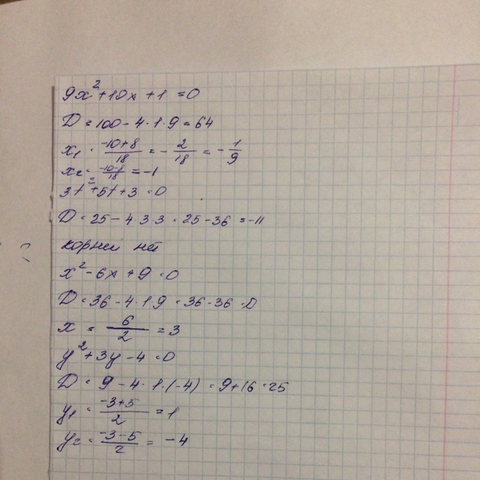 9x²+10x+1=0
D=100-4·1·9=64
x₁=-10+8/18=-2/18=-1/9
x₂=-10-8/18=-1
3t²+5t+3=0
D=25-4·3·3=25-36=-11
корней нет
x²-6x+9=0
D=36-4·1·9=36-36=0
x=6/2=3
y²+3y-4=0
D=9-4·1·(-4)=9+16=25
y₁=-3+5/2=1
y₂=-3-5/2=-4